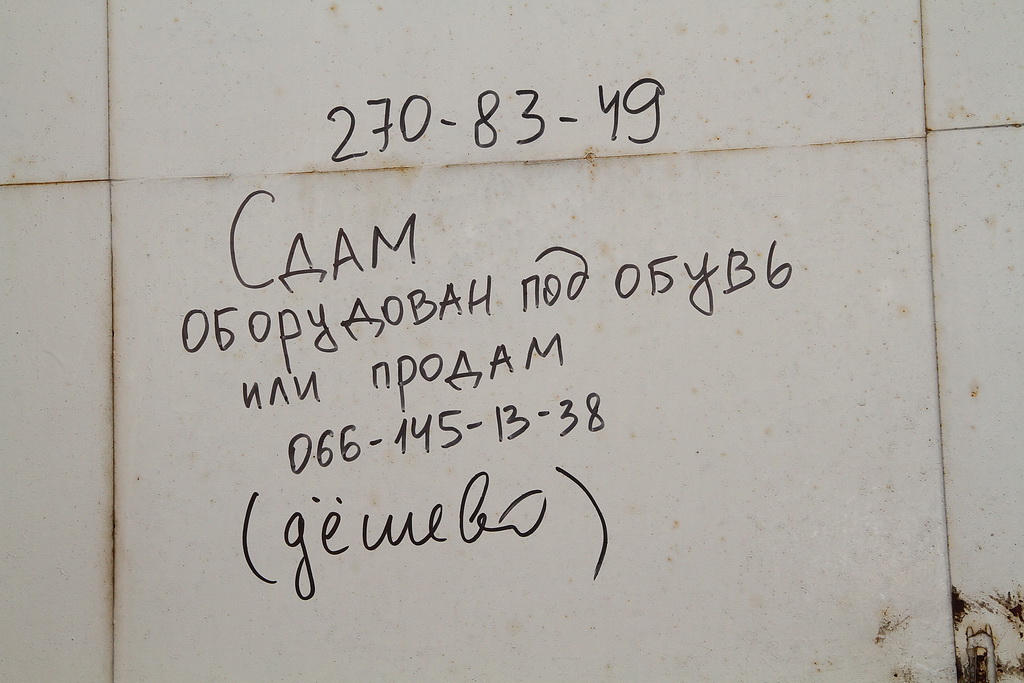 270-83-49
Сдам
оборудован под обувь
или продам
066-145-13-38
(дёшево)